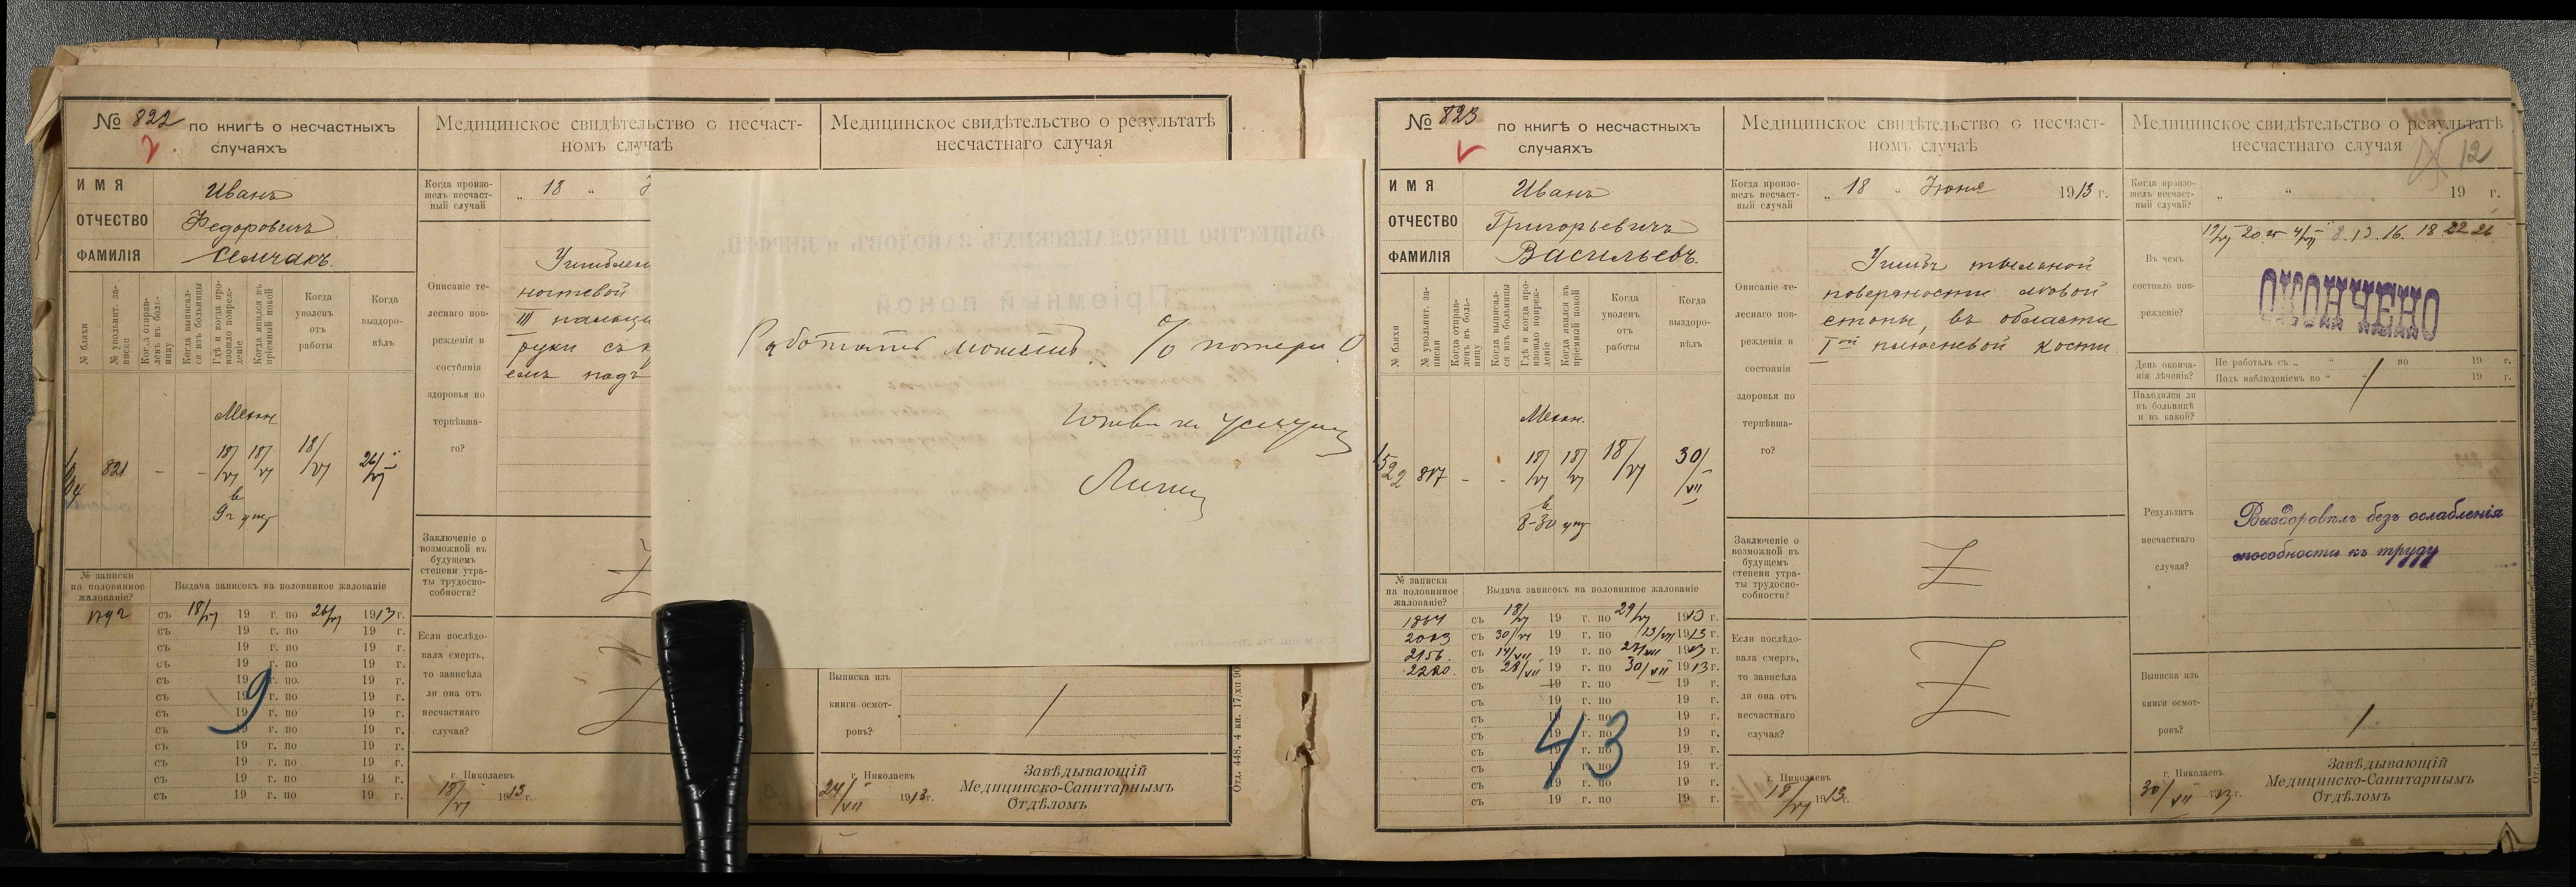 № 822 по книгѣ о несчастныхъ
случаяхъ
ИМЯ Иванъ
ОТЧЕСТВО Федоровичъ
ФАМИЛІЯ Семчакъ.
№ бляхи
№ увольнит. записки
Когда отправленъ въ больницу
Когда выписался изъ больницы
Гдѣ и когда произошло поврежденіе
Когда явился въ пріемный покой
Когда
уволенъ
отъ
работы
Когда
выздоровѣлъ
821 - - 18/VI 18/VI 18/VI 26/VI
в
9 ч утр
№ записки
на половинное
жалованіе?
Выдача записокъ на половинное жалованіе
1792 съ 18/VI 19 г. по 26/VI 1913 г.
съ 19 г. по 19 г.
съ 19 г. по 19 г.
съ 19 г. по 19 г.
съ 19 г. по 19 г.
съ 19 г. по 19 г.
съ 19 г. по 19 г.
съ 19 г. по 19 г.
съ 19 г. по 19 г.
съ 19 г. по 19 г.
съ 19 г. по 19 г.
съ 19 г. по 19 г.
9
Медицинское свидѣтельство о несчаст-
номъ случаѣ
Когда произо-
шелъ несчаст-
ный случай
„ 18 “
Описаніе те-
леснаго пов-
режденія и
состоянія
здоровья по
терпѣвша-
го?
ногтевой
III пальца
руки съ
емъ надъ
Заключеніе о
возможной въ
будущемъ
степени утра-
ты трудоспо-
собности?
Если послѣдо-
вала смерть,
то зависѣла
ли она отъ
несчастнаго
случая?
г. Николаевъ
18/VI 1913 г.
Медицинское свидѣтельство о результатѣ
несчастнаго случая
Работать можетъ. % потери 0
Выписка изъ
книги осмот-
ровъ?
г. Николаевъ
24/VII 1913 г.
Завѣдывающій
Медицинско-Санитарнымъ
Отдѣломъ
№ 823 по книгѣ о несчастныхъ
случаяхъ
ИМЯ Иванъ
ОТЧЕСТВО Григорьевичъ
ФАМИЛІЯ Васильевъ.
№ бляхи
№ увольнит. записки
Когда отправленъ въ больницу
Когда выписался изъ больницы
Гдѣ и когда произошло поврежденіе
Когда явился въ пріемный покой
Когда
уволенъ
отъ
работы
Когда
выздоровѣлъ
1522 817 - - 18/VI 18/VI 18/VI 30/VII
в
8-30 утр
№ записки
на половинное
жалованіе?
Выдача записокъ на половинное жалованіе
1864 съ 18/VI 19 г. по 29/VI 1913 г.
2003 съ 30/VI 19 г. по 13/VII 1913 г.
2156. съ 14/VII 19 г. по 27/VII 1913 г.
2220. съ 28/VII 19 г. по 30/VII 1913 г.
съ 19 г. по 19 г.
съ 19 г. по 19 г.
съ 19 г. по 19 г.
съ 19 г. по 19 г.
съ 19 г. по 19 г.
съ 19 г. по 19 г.
съ 19 г. по 19 г.
съ 19 г. по 19 г.
43
Медицинское свидѣтельство о несчаст-
номъ случаѣ
Когда произо-
шелъ несчаст-
ный случай
„ 18 “ Іюня 1913 г.
Описаніе те-
леснаго пов-
режденія и
состоянія
здоровья по
терпѣвша-
го?
Ушибъ тыльной
поверхности лѣвой
стопы, въ области
Iой плюсневой кости.
Заключеніе о
возможной въ
будущемъ
степени утра-
ты трудоспо-
собности?
Если послѣдо-
вала смерть,
то зависѣла
ли она отъ
несчастнаго
случая?
г. Николаевъ
18/VI 1913 г.
Медицинское свидѣтельство о результатѣ
несчастнаго случая
12
Когда произо-
шелъ несчаст-
ный случай?
„ “ 19 г.
Въ чемъ
состояло пов-
режденіе?
ОКОНЧЕНО
День оконча-
нія лѣченія?
Не работалъ съ „ “ по 19 г.
Подъ наблюденіемъ по “ “ 19 г.
Находился ли
въ больницѣ
и въ какой?
Результатъ
несчастнаго
случая?
Выздоровѣлъ безъ ослабленія
способности къ труду
Выписка изъ
книги осмот-
ровъ?
г. Николаевъ
30/VII 1913 г.
Завѣдывающій
Медицинско-Санитарнымъ
Отдѣломъ